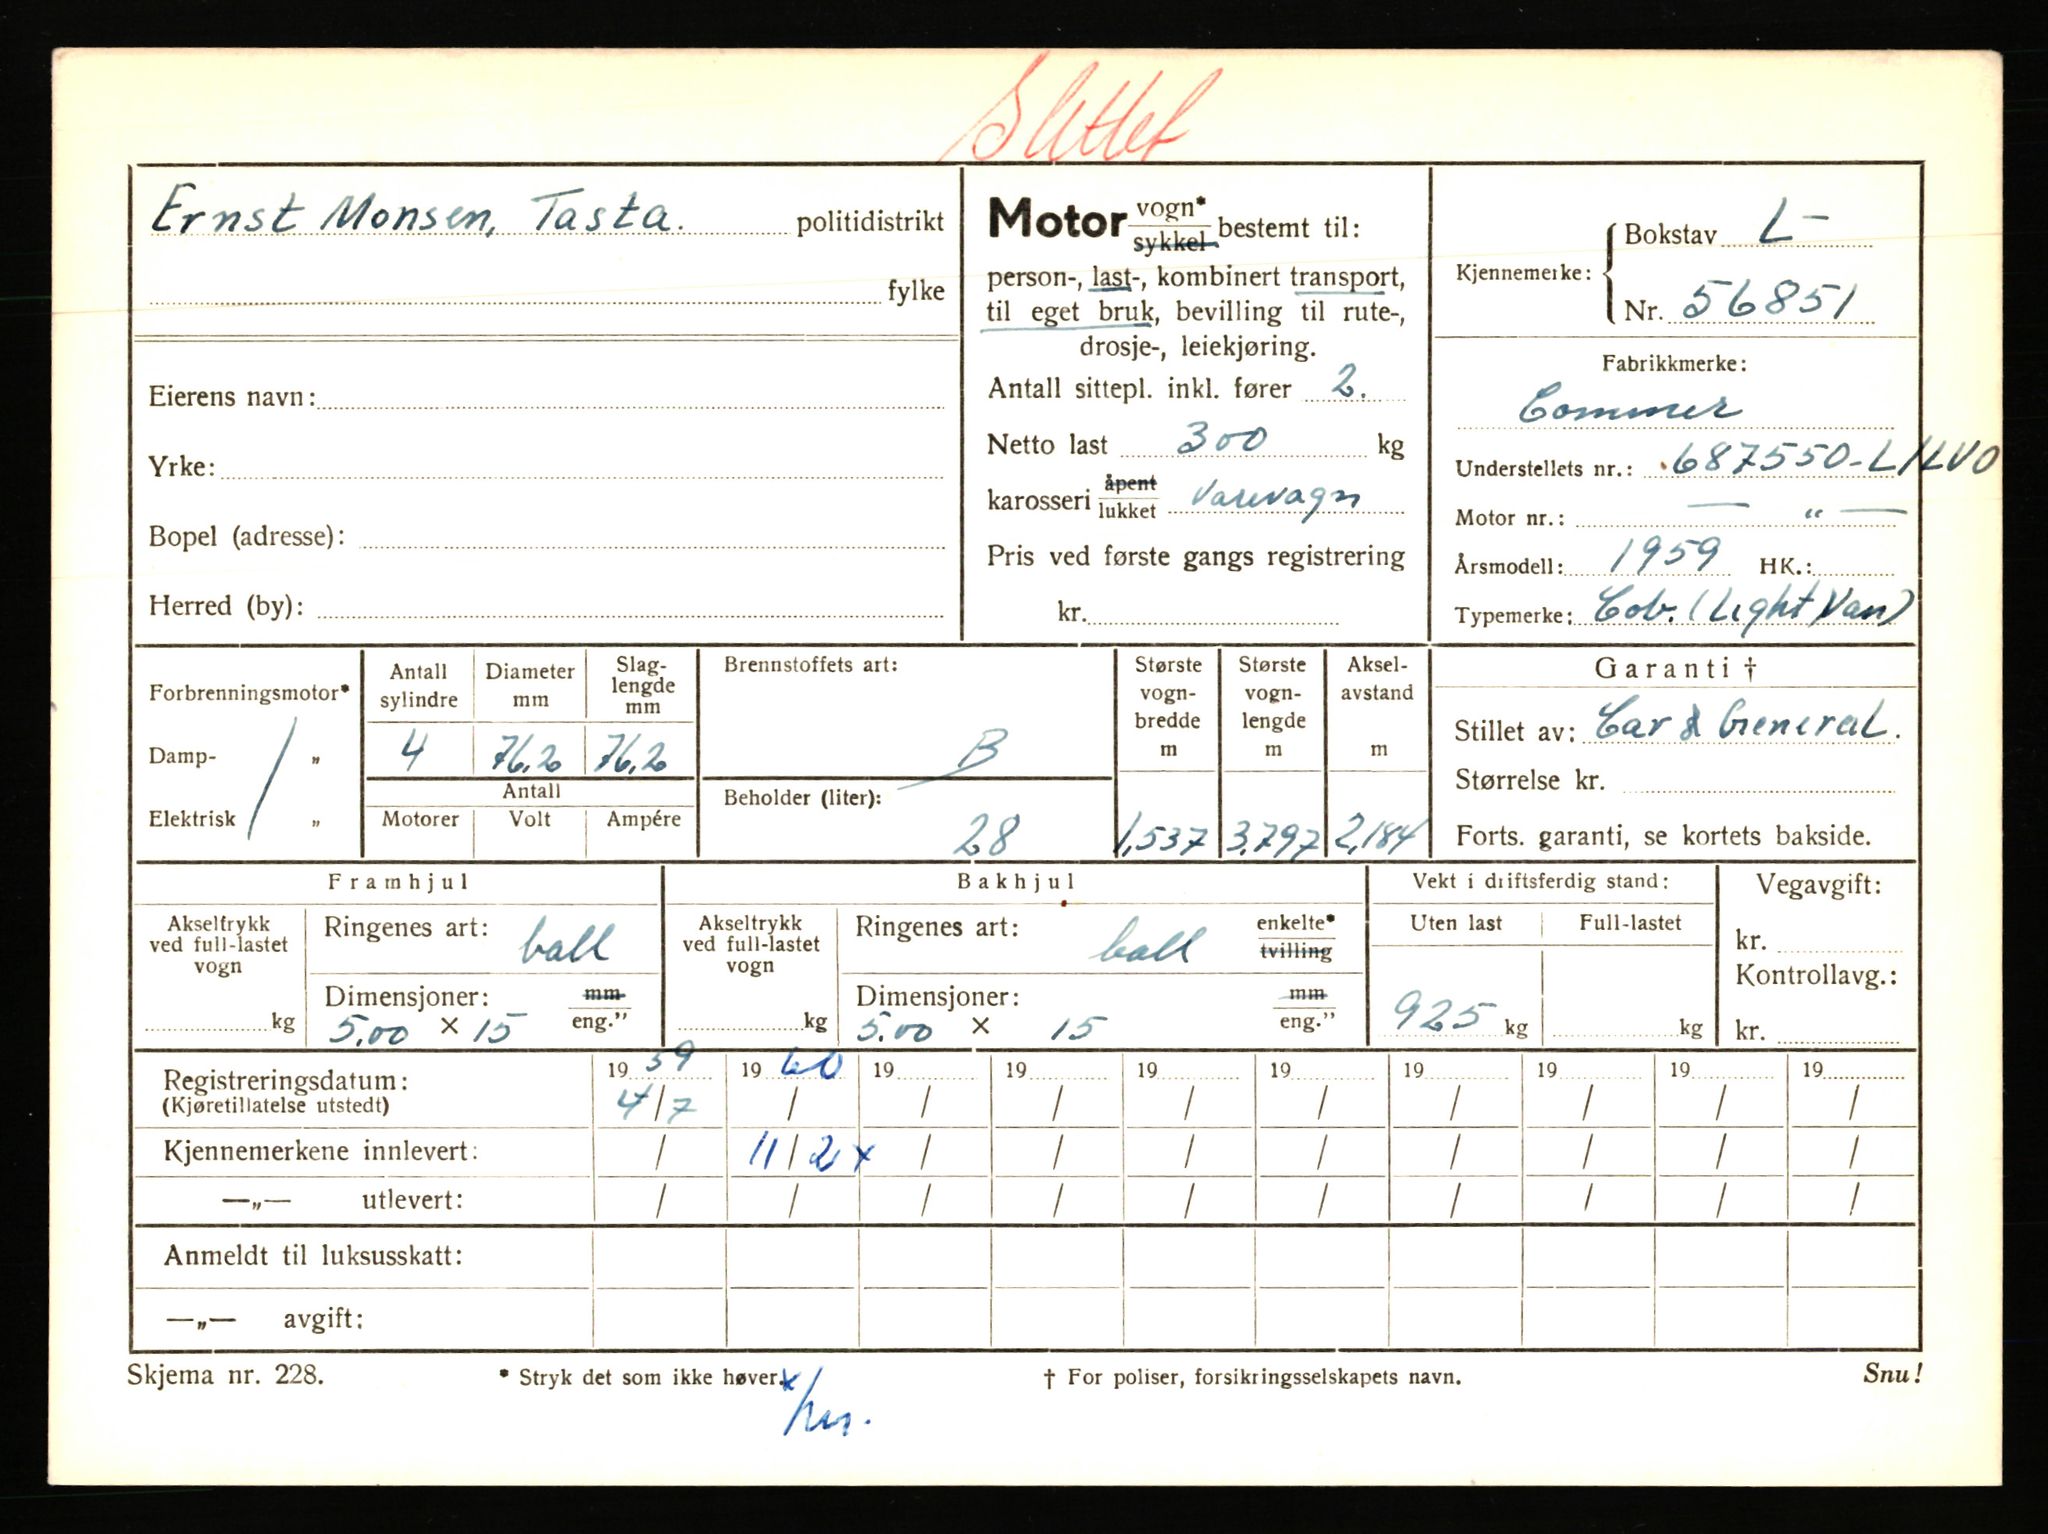 Slettet
Ernst Monsen, Tasta. politidistrikt
fylke
Eierens navn:
Yrke:
Bopel (adresse):
Herred (by):
Motor vogn* sykkel bestemt til:
person-, last-, kombinert transport,
til eget bruk, bevilling til rute-,
drosje-, leiekjøring.
Antall sittepl. inkl. fører 2.
Netto last 300 kg
karosseri åpent lukket varevagn
Pris ved første gangs registrering
kr.
Kjennemerke: Bokstav L-
Nr. 56851
Fabrikkmerke:
Commer
Understellets nr.: 687550-L/LVO
Motor nr.: — " —
Årsmodell: 1959 HK.:
Typemerke: Cob. (Light Van)
Forbrenningsmotor*
Damp- "
Elektrisk "
Antall sylindre Diameter mm Slag-lengde mm
4 76,2 76,2
Antall
Motorer Volt Ampére
Brennstoffets art:
B
Beholder (liter):
28
Største vogn-bredde m Største vogn-lengde m Aksel-avstand m
1,537 3,797 2,184
Garanti †
Stillet av: Car & General.
Størrelse kr.
Forts. garanti, se kortets bakside.
Framhjul
Akseltrykk ved full-lastet vogn
kg
Ringenes art: ball
Dimensjoner: mm eng."
5.00 × 15
Bakhjul
Akseltrykk ved full-lastet vogn
kg
Ringenes art: ball enkelte* tvilling
Dimensjoner: mm eng."
5.00 × 15
Vekt i driftsferdig stand:
Uten last Full-lastet
925 kg kg
Vegavgift:
kr.
Kontrollavg.:
kr.
Registreringsdatum: 1959 1960 19 19 19 19 19 19 19 19
(Kjøretillatelse utstedt) 4/7 / / / / / / / / /
Kjennemerkene innlevert: / 11/2 x / / / / / / / /
—„— utlevert: / / / / / / / / / /
Anmeldt til luksusskatt:
—„— avgift:
Skjema nr. 228. * Stryk det som ikke høver. † For poliser, forsikringsselskapets navn. Snu!
x/